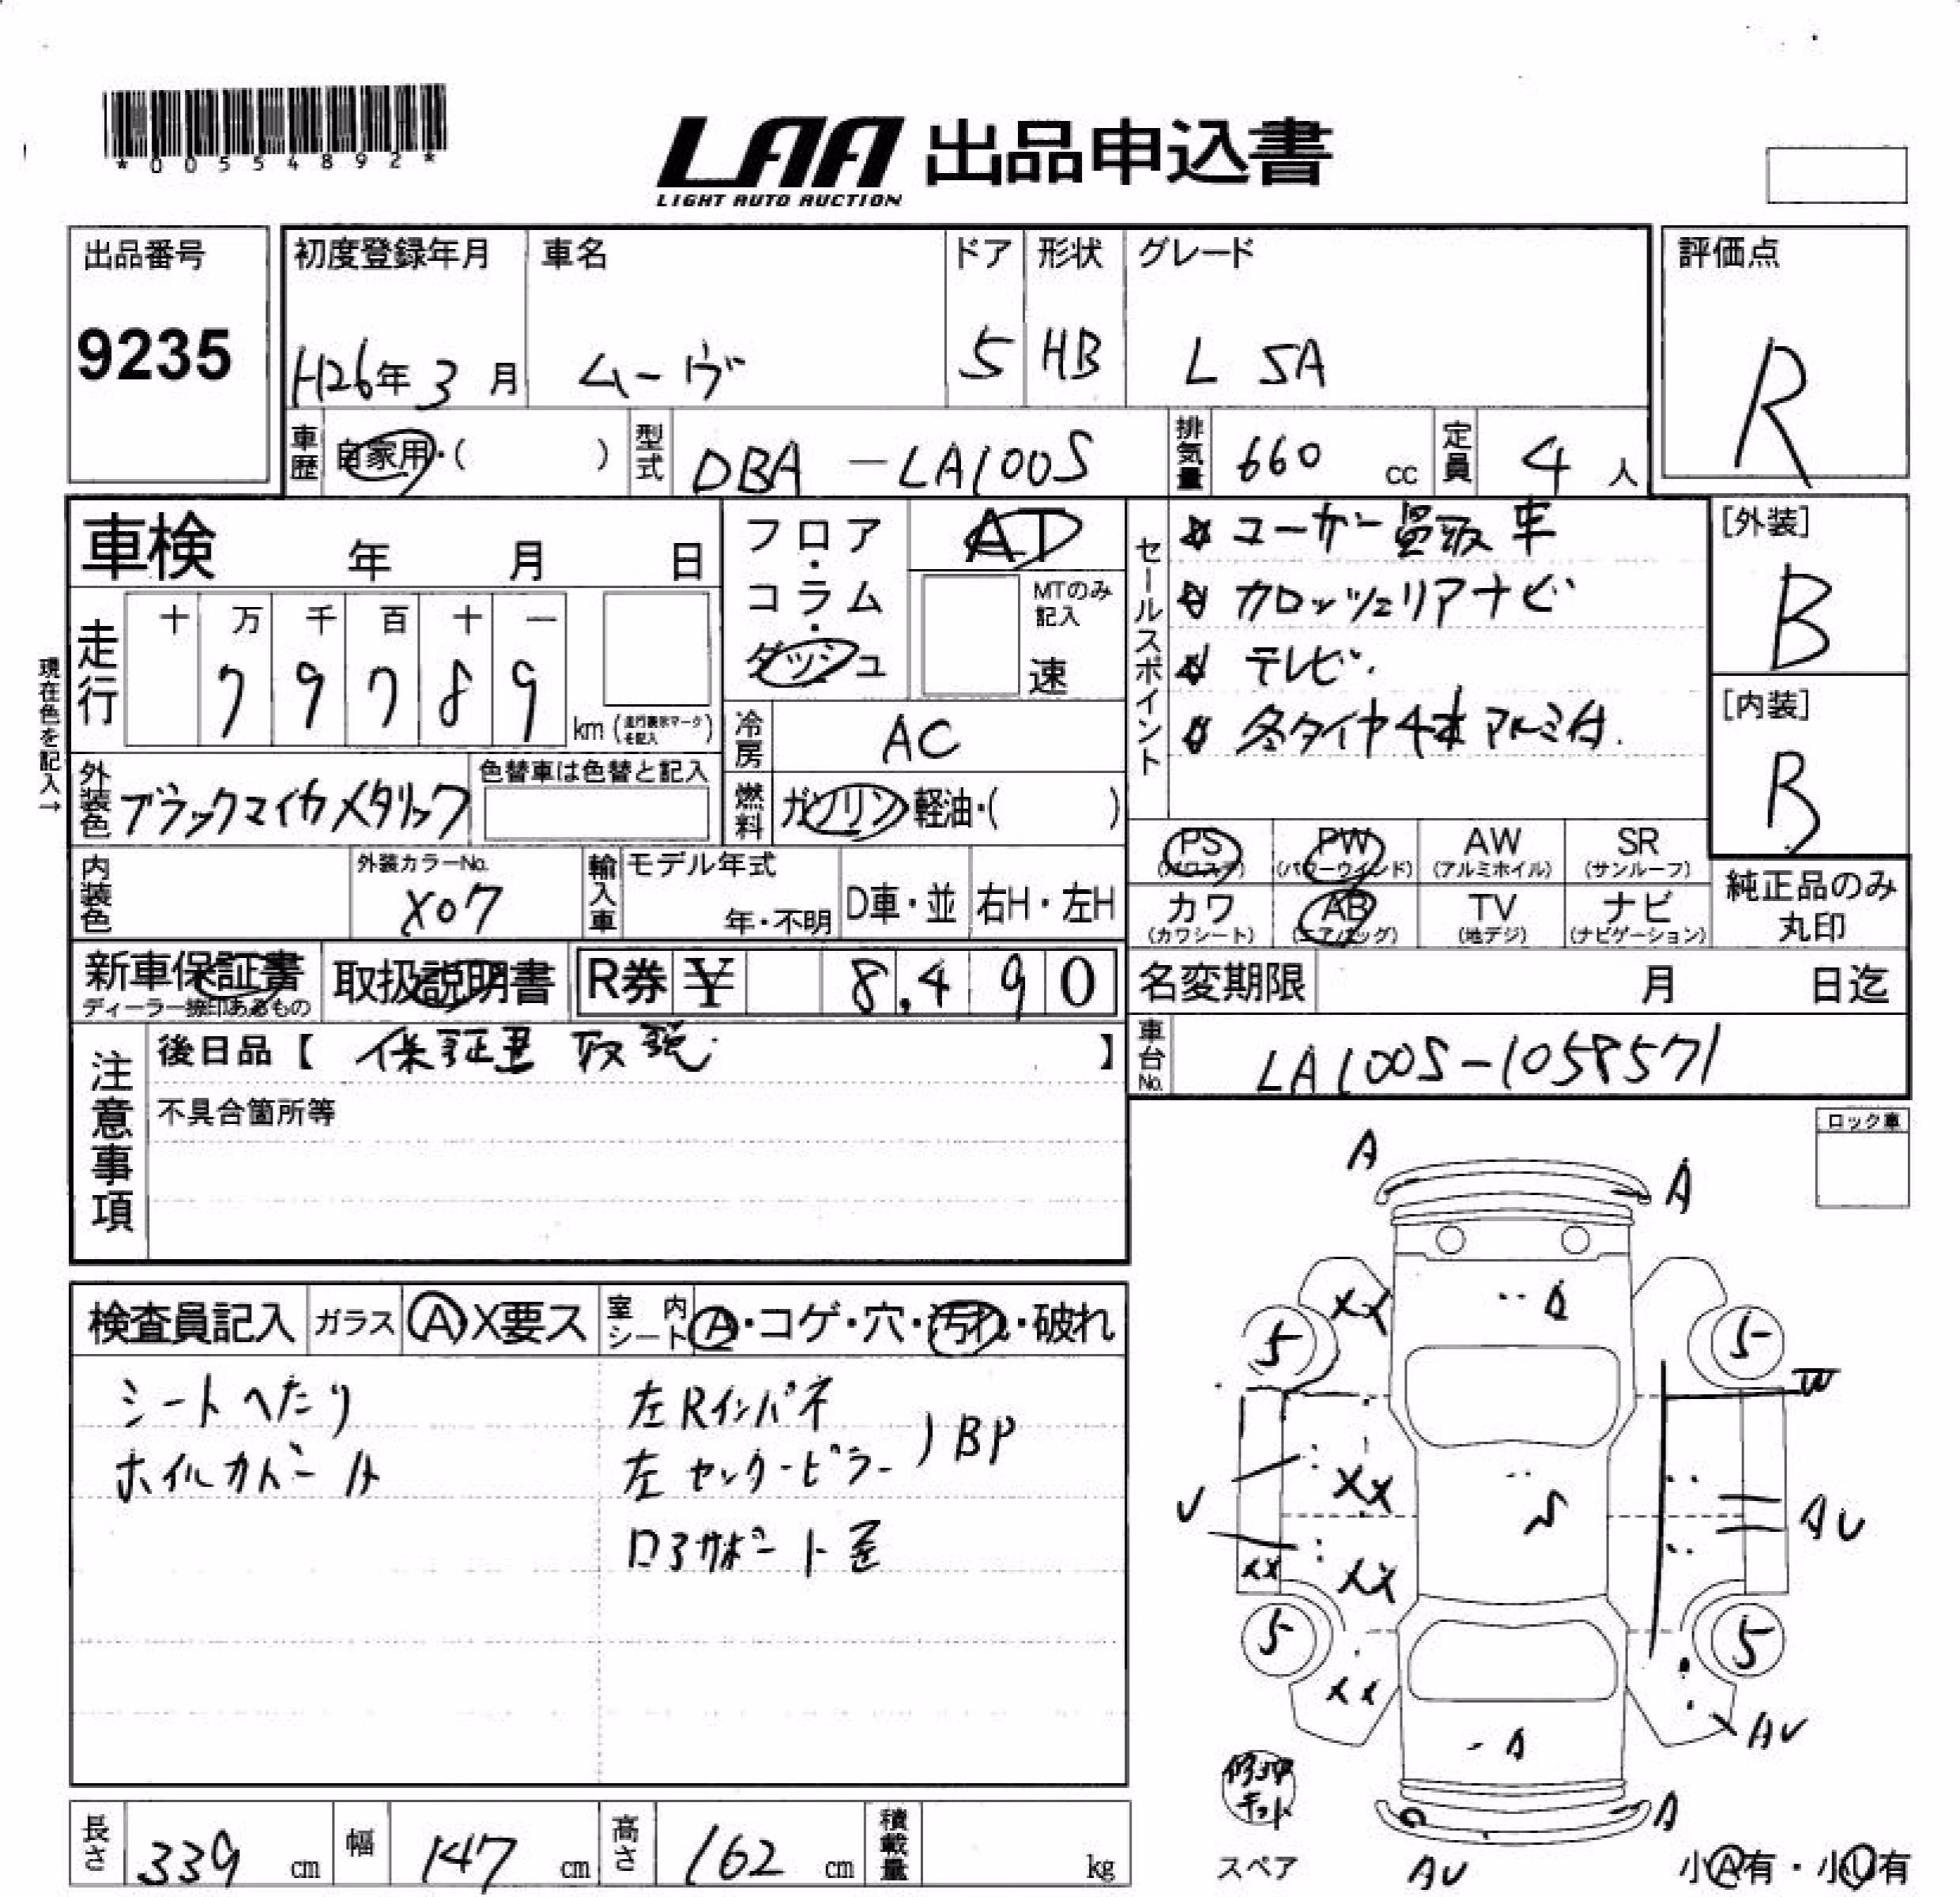 *00554892*
LAA 出品申込書
LIGHT AUTO AUCTION
出品番号
9235
初度登録年月
H26年 3月
車名
ムーヴ
ドア
5
形状
HB
グレード
L SA
評価点
R
車歴
自家用・( )
型式
DBA -LA100S
排気量
660 cc
定員
4 人
車検 年 月 日
走行
十 万 千 百 十 一
7 9 7 8 9
km (走行表示マークを記入)
現在色を記入→
フロア・コラム・ダッシュ
AT
MTのみ記入
速
冷房
AC
燃料
ガソリン 軽油・( )
セールスポイント
ユーザー買取車
カロッツェリアナビ
テレビ.
冬タイヤ4本アルミ付.
[外装]
B
[内装]
B
外装色
ブラックマイカメタリック
色替車は色替と記入
内装色
外装カラーNo.
X07
輸入車
モデル年式
年・不明
D車・並
右H・左H
PS
(パワステ)
PW
(パワーウインド)
AW
(アルミホイル)
SR
(サンルーフ)
カワ
(カワシート)
AB
(エアバッグ)
TV
(地デジ)
ナビ
(ナビゲーション)
純正品のみ
丸印
新車保証書
ディーラー捺印あるもの
取扱説明書
R券 ¥ 8,490
名変期限 月 日迄
注意事項
後日品【 保証書 取説 】
不具合箇所等
車台No.
LA100S-1058571
ロック車
検査員記入
ガラス
A X要ス
室内シート
A・コゲ・穴・汚れ・破れ
シートへたり
左Rインパネ
左センターピラー
BP
コアサポート歪
A
A
XX
A
5
5
W
XX
U
AU
XX
XX
5
5
XX
AU
A
修理キット
スペア
A
AU
小A有・小U有
長さ
339 cm
幅
147 cm
高さ
162 cm
積載量
kg